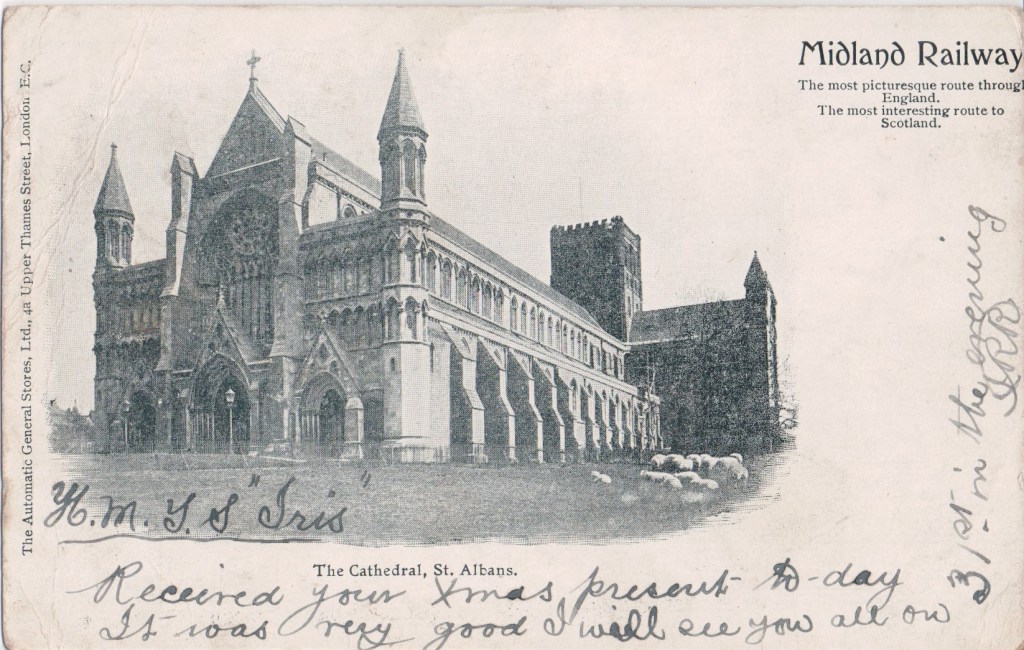 Midland Railway
The most picturesque route through
England.
The most interesting route to
Scotland.
The Automatic General Stores, Ltd., 4a Upper Thames Street, London E.C.
H.M.S "Iris"
The Cathedral, St. Albans.
Received your Xmas present to-day
It was very good I will see you all on
31st in the evening